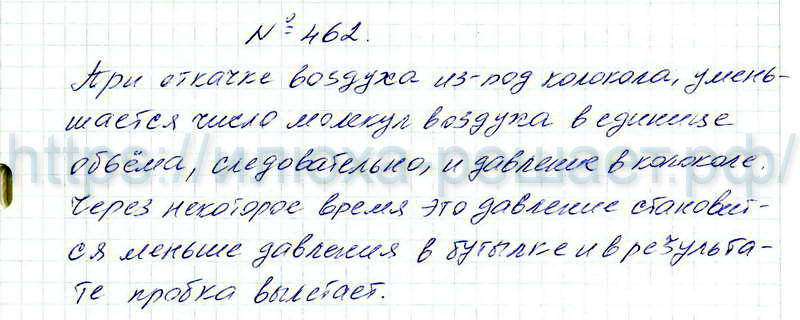 № 462.
При откачке воздуха из-под колокола, умень-
шается число молекул воздуха в единице
объёма, следовательно, и давление в колоколе.
Через некоторое время это давление становит-
ся меньше давления в бутылке и в результа-
те пробка вылетает.